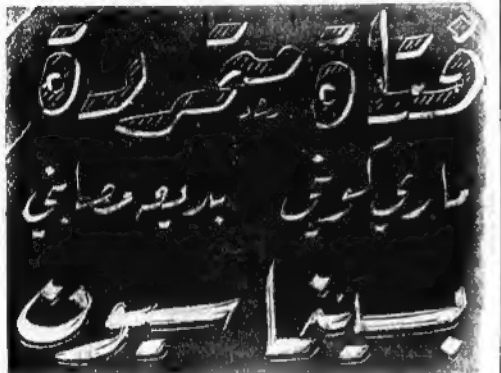 فتاة متمردة
ماري كويني بديعه مصابني
بسينما سيون